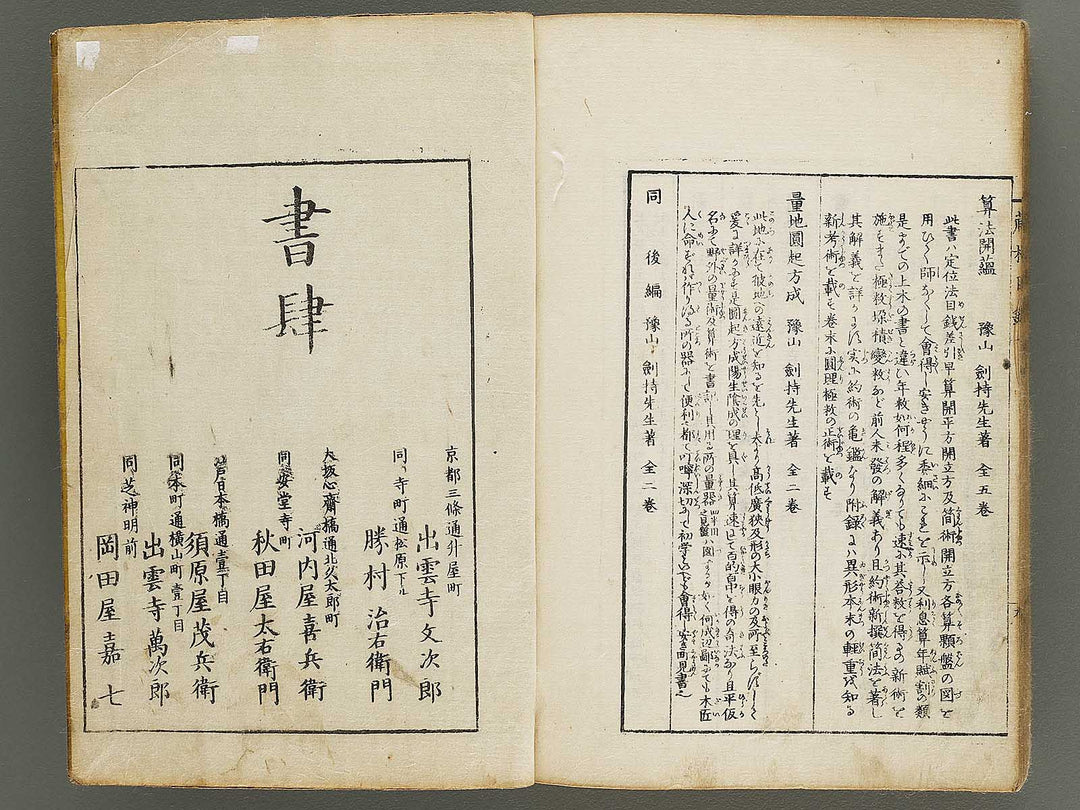 算法開蘊 豫山 劍持先生著 全五卷
此書ハ定位法目錢差引早算開平方開立方及簡術開立方各算顆盤の図と
用ひく師なくして會得し安きやうに委細にこれを示し又利息算年賦割の類
是までの上木の書と違い年数如何程多くなりても速に其答数を得るの新術を
施しまた極数垛積變数など前人未發の解義あり且約術新撰簡法を著し
其解義を詳かにす実に約術の亀鑑なり附録にハ異形本末の軽重を知る
新考術を載せ巻末に圓理極数の正術を載す
量地圓起方成 豫山 劍持先生著 全二卷
此地に在て彼地への遠近を知るを先とし夫より高低廣狭及形の大小眼力の及所至らざるなし
爰に詳かにす是圓起方成陽生陰成の理を具し其算速にして百的百中を得の奇法なり且平仮
名にて野外の量術及算術を書記し其用る所の量器
人に命ぜれバ作りける所の器にして便利也都て叮嚀深切にして初学の人にも會得し安き
同 後編 豫山 劍持先生著 全二卷
書肆
京都三條通舛屋町
出雲寺文次郎
同寺町通松原下ル
勝村治右衛門
大坂心齋橋通北久太郎町
河内屋喜兵衛
同安堂寺町
秋田屋太右衛門
江戸日本橋通壹丁目
須原屋茂兵衛
同本町通横山町壹丁目
出雲寺萬次郎
同芝神明前
岡田屋嘉七